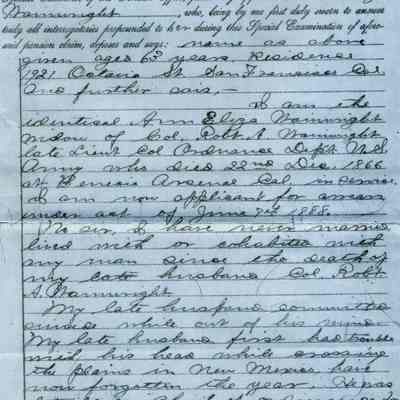 Wainwright who, being by me first duly sworn to answer
truly all interrogatories propounded to her during this Special Examination of afore-
said pension claim, deposes and says: name as above
given aged 63 years Residence
1921 Octavia St. San Francisco Cal
And further says,—
I am the
identical Ann Eliza Wainwright
widow of Col. Robt. A. Wainwright
late Lieut Col Ordnance Dept. U.S.
Army who died 22nd Dec. 1866
at Benicia Arsenal Cal. in service.
I am now applicant for arrears
under act of June 7th 1888.
No sir, I have never married
lived with or cohabited with
any man since the death of
my late husband Col. Robt
A. Wainwright
My late husband committed
suicide while out of his mind.
My late husband first had trouble
with his head while crossing
the plains in New Mexico have
now forgotten the year. He was